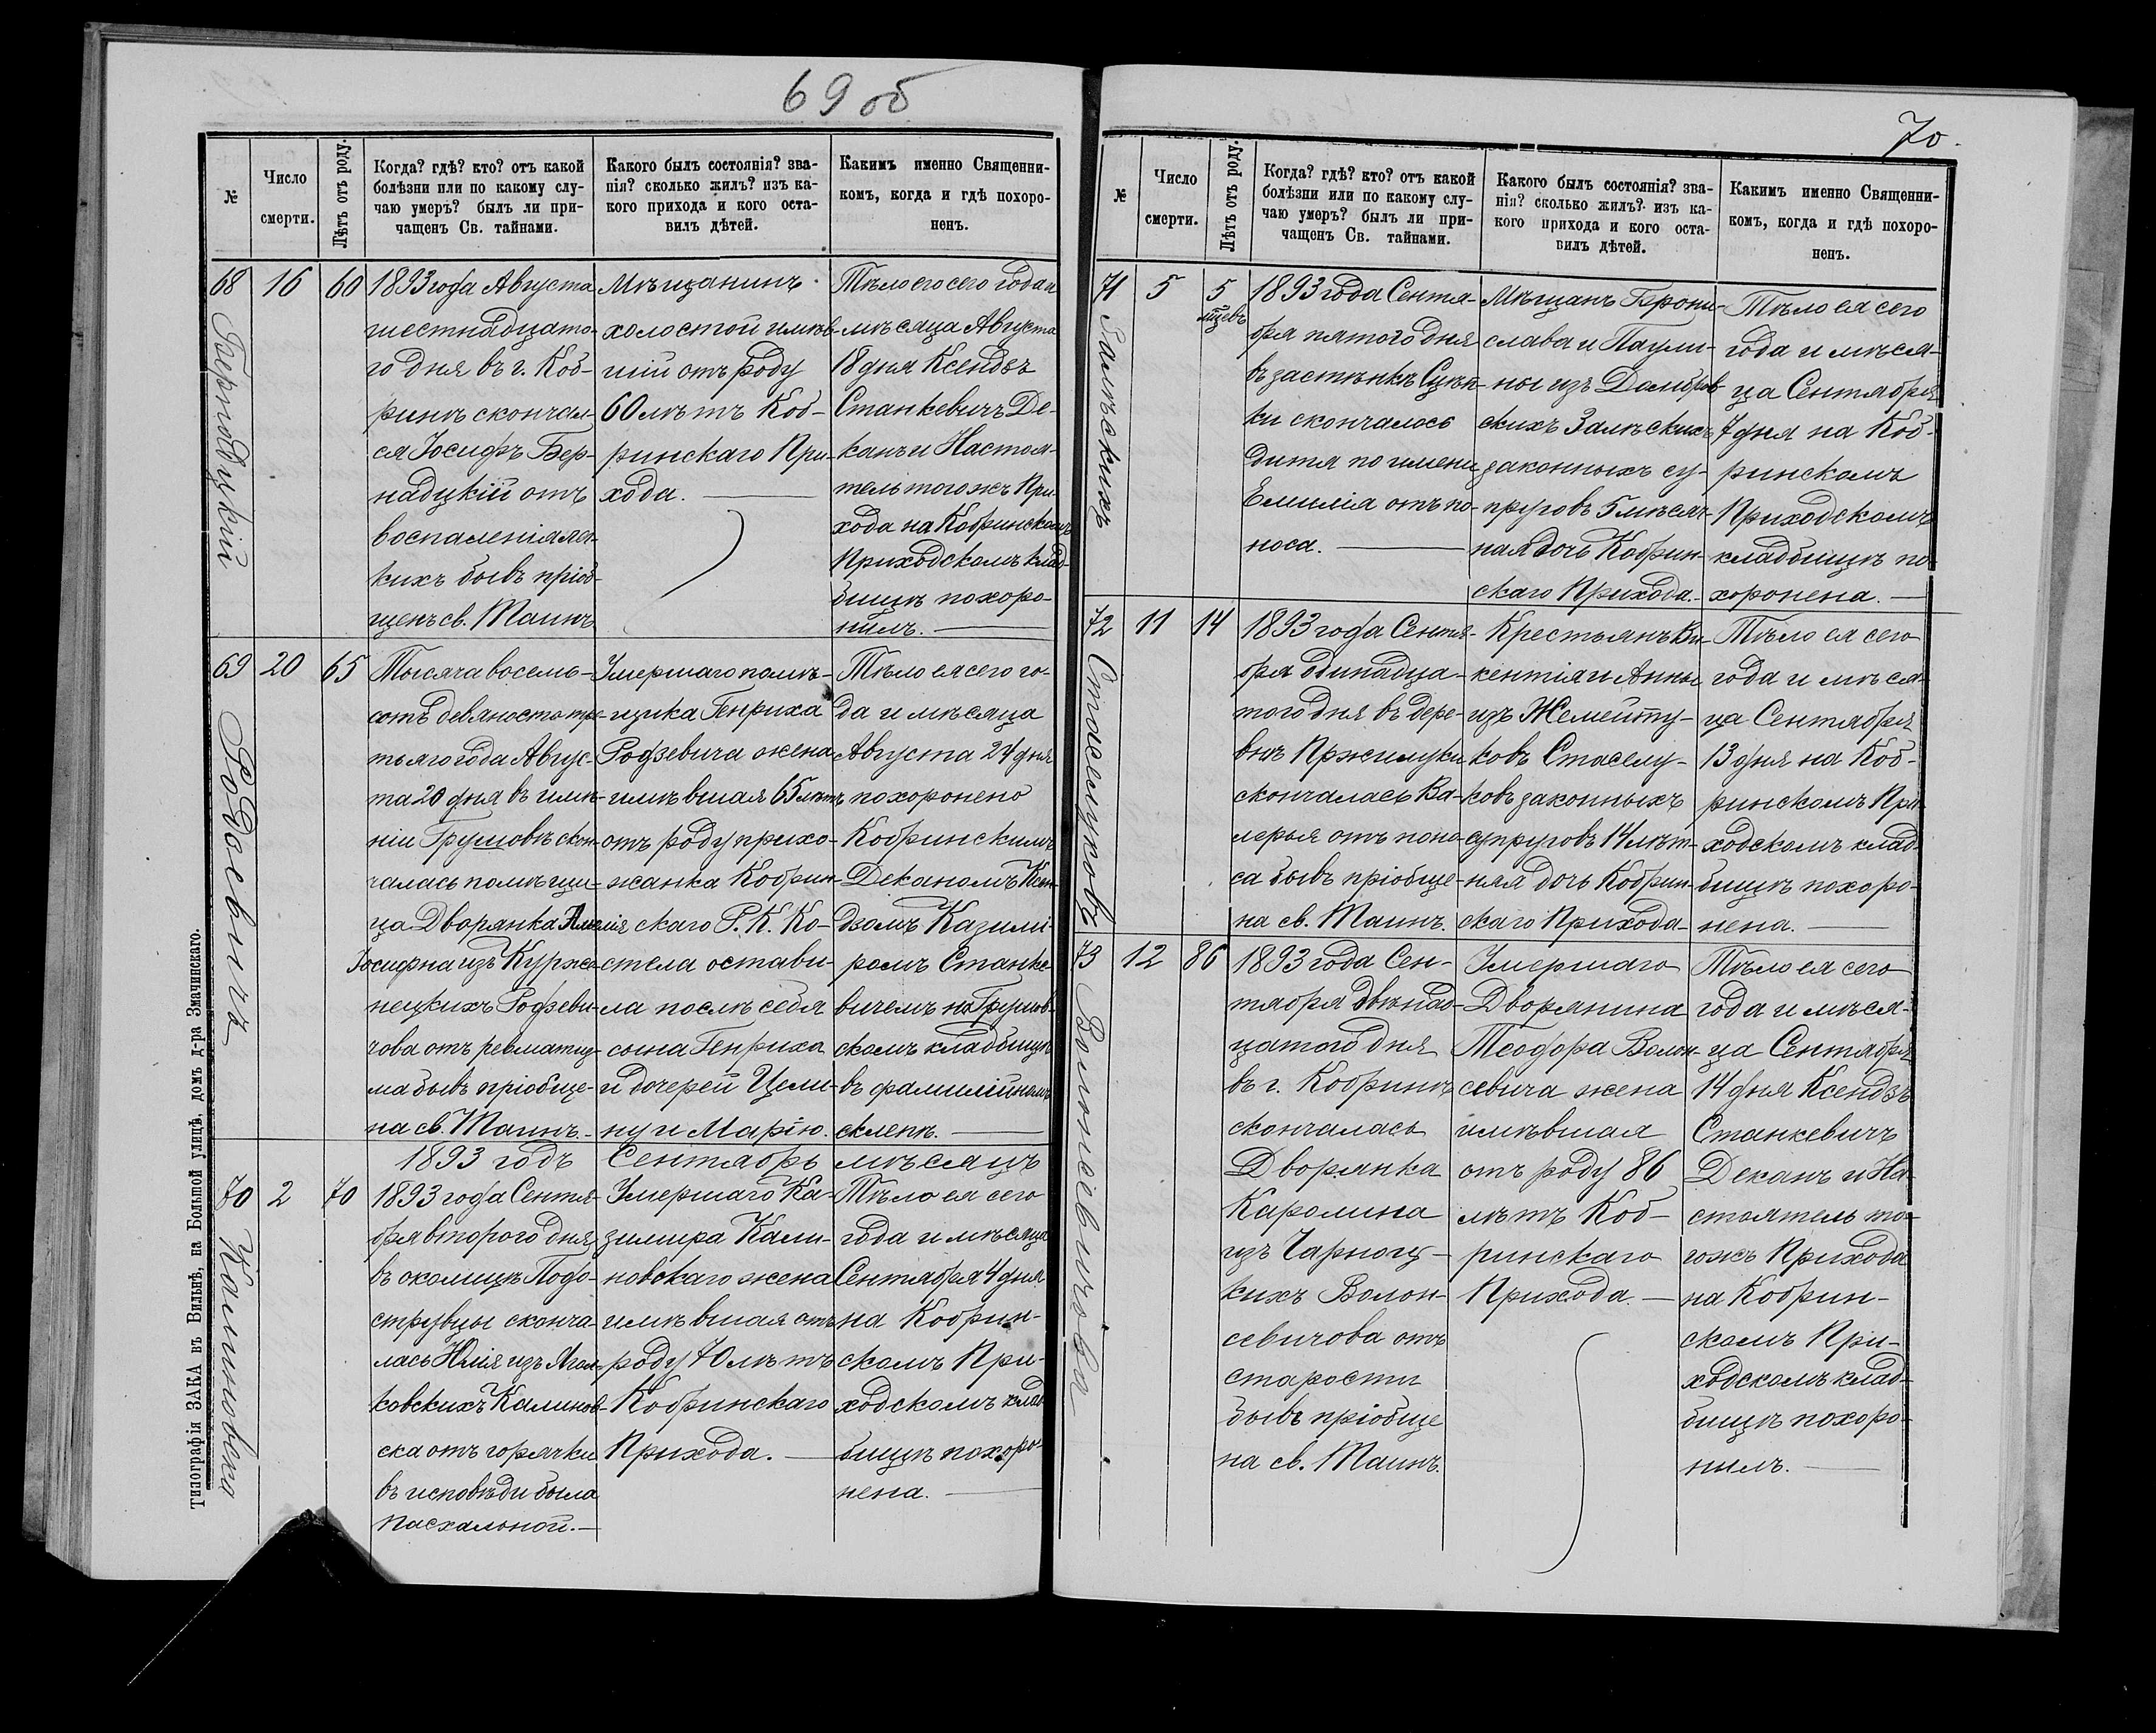 69 об
№
Число смерти.
Лѣтъ отъ роду.
Когда? гдѣ? кто? отъ какой
болѣзни или по какому слу-
чаю умеръ? былъ ли при-
чащенъ Св. тайнами.
Какого былъ состоянія? зва-
нія? сколько жилъ? изъ ка-
кого прихода и кого оста-
вилъ дѣтей.
Какимъ именно Священни-
комъ, когда и гдѣ похоро-
ненъ.
68
Бернадцкій
16
60
1893 года Августа
шестнадцато-
го дня въ г. Коб-
ринѣ скончал-
ся Іосифъ Бер-
надцкій отъ
воспаленія лег-
кихъ бывъ пріоб-
щенъ св. Таинъ
Мѣщанинъ
холостой имѣв-
шій отъ роду
60 лѣтъ Коб-
ринскаго При-
хода.
Тѣло его сего года и
мѣсяца Августа
18 дня Ксендзъ
Станкевичъ Де-
канъ и Настоя-
тель тогожъ При-
хода на Кобринскомъ
Приходскомъ клад-
бищѣ похоро-
нилъ.
69
Родзевичъ
20
65
Тысяча восемь-
сотъ девяносто тре-
тьяго года Авгус-
та 20 дня въ имѣ-
ніи Грушовѣ скон-
чалась помѣщи-
ца Дворянка
Іосифна изъ Курже-
нецкихъ Родзеви-
чова отъ ревматиз-
ма бывъ пріобще-
на св. Таинъ.
Умершаго помѣ-
щика Генриха
Родзевича жена
имѣвшая 65 лѣтъ
отъ роду прихо-
жанка Кобрин-
скаго Р. К. Ко-
стела остави-
ла послѣ себя
сына Генриха
и дочерей Цели-
ну и Марію.
Тѣло ея сего го-
да и мѣсяца
Августа 24 дня
похоронено
Кобринскимъ
Деканомъ Ксен-
дзомъ Казими-
ромъ Станке-
вичемъ на Грушов-
скомъ кладбищѣ
въ фамилійномъ
склепѣ.
1893 годъ Сентябрь мѣсяцъ
70
Калиновска
2
70
1893 года Сентя-
бря второго дня
въ околицѣ Подо-
струвцы сконча-
лась Юлія изъ
ковскихъ Калинов-
ска отъ горячки
въ исповѣди была
пасхальной.
Умершаго Ка-
зимира Кали-
новскаго жена
имѣвшая отъ
роду 70 лѣтъ
Кобринскаго
Прихода.
Тѣло ея сего
года и мѣсяца
Сентября 4 дня
на Кобрин-
скомъ При-
ходскомъ клад-
бищѣ похоро-
нена.
Типографія ЗАКА въ Вильнѣ, на Большой улицѣ, домъ д-ра Змачинскаго.
70.
№
Число смерти.
Лѣтъ отъ роду.
Когда? гдѣ? кто? отъ какой
болѣзни или по какому слу-
чаю умеръ? былъ ли при-
чащенъ Св. тайнами.
Какого былъ состоянія? зва-
нія? сколько жилъ? изъ ка-
кого прихода и кого оста-
вилъ дѣтей.
Какимъ именно Священни-
комъ, когда и гдѣ похоро-
ненъ.
71
Залѣскихъ
5
5
мцевъ
1893 года Сентя-
бря пятого дня
въ застѣнкѣ
ки скончалось
дитя по имени
Емилія отъ по-
носа.
Мѣщанъ Брони-
слава и Паули-
ны изъ Домбров-
скихъ Залѣскихъ
законныхъ су-
пруговъ 5 мѣсяч-
ная дочь Кобрин-
скаго Прихода.
Тѣло ея сего
года и мѣся-
ца Сентября
7 дня на Коб-
ринскомъ
Приходскомъ
кладбищѣ по-
хоронена.
72
Стаселуковъ
11
14
1893 года Сентя-
бря одинадца-
того дня въ дере-
внѣ Пржилуки
скончалась Ва-
лерья отъ поно-
са бывъ пріобще-
на св. Таинъ.
Крестьянъ Ви-
кентія и Анны
изъ Жемейту-
ковъ Стаселу-
ковъ законныхъ
супруговъ 14 лѣт-
няя дочь Кобрин-
скаго Прихода
Тѣло ея сего
года и мѣся-
ца Сентября
13 дня на Коб-
ринскомъ При-
ходскомъ клад-
бищѣ похоро-
нена.
73
Волонсевичова
12
86
1893 года Сен-
тября двѣнад-
цатого дня
въ г. Кобринѣ
скончалась
Дворянка
Каролина
изъ Чарноц-
кихъ Волон-
севичова отъ
старости
бывъ пріобще
на св. Таинъ.
Умершаго
Дворянина
Теофора Волон-
севича жена
имѣвшая
отъ роду 86
лѣтъ Коб-
ринскаго
Прихода.
Тѣло ея сего
года и мѣся-
ца Сентября
14 дня Ксендзъ
Станкевичъ
Деканъ и На-
стоятель то-
гожъ Прихода
на Кобрин-
скомъ При-
ходскомъ клад-
бищѣ похоро-
нилъ.